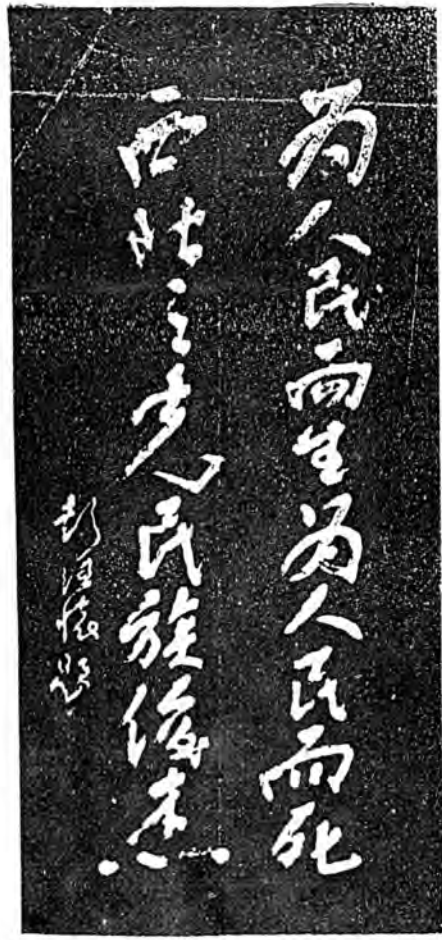 为人民而生为人民而死
西陲之光民族俊杰
彭德怀题